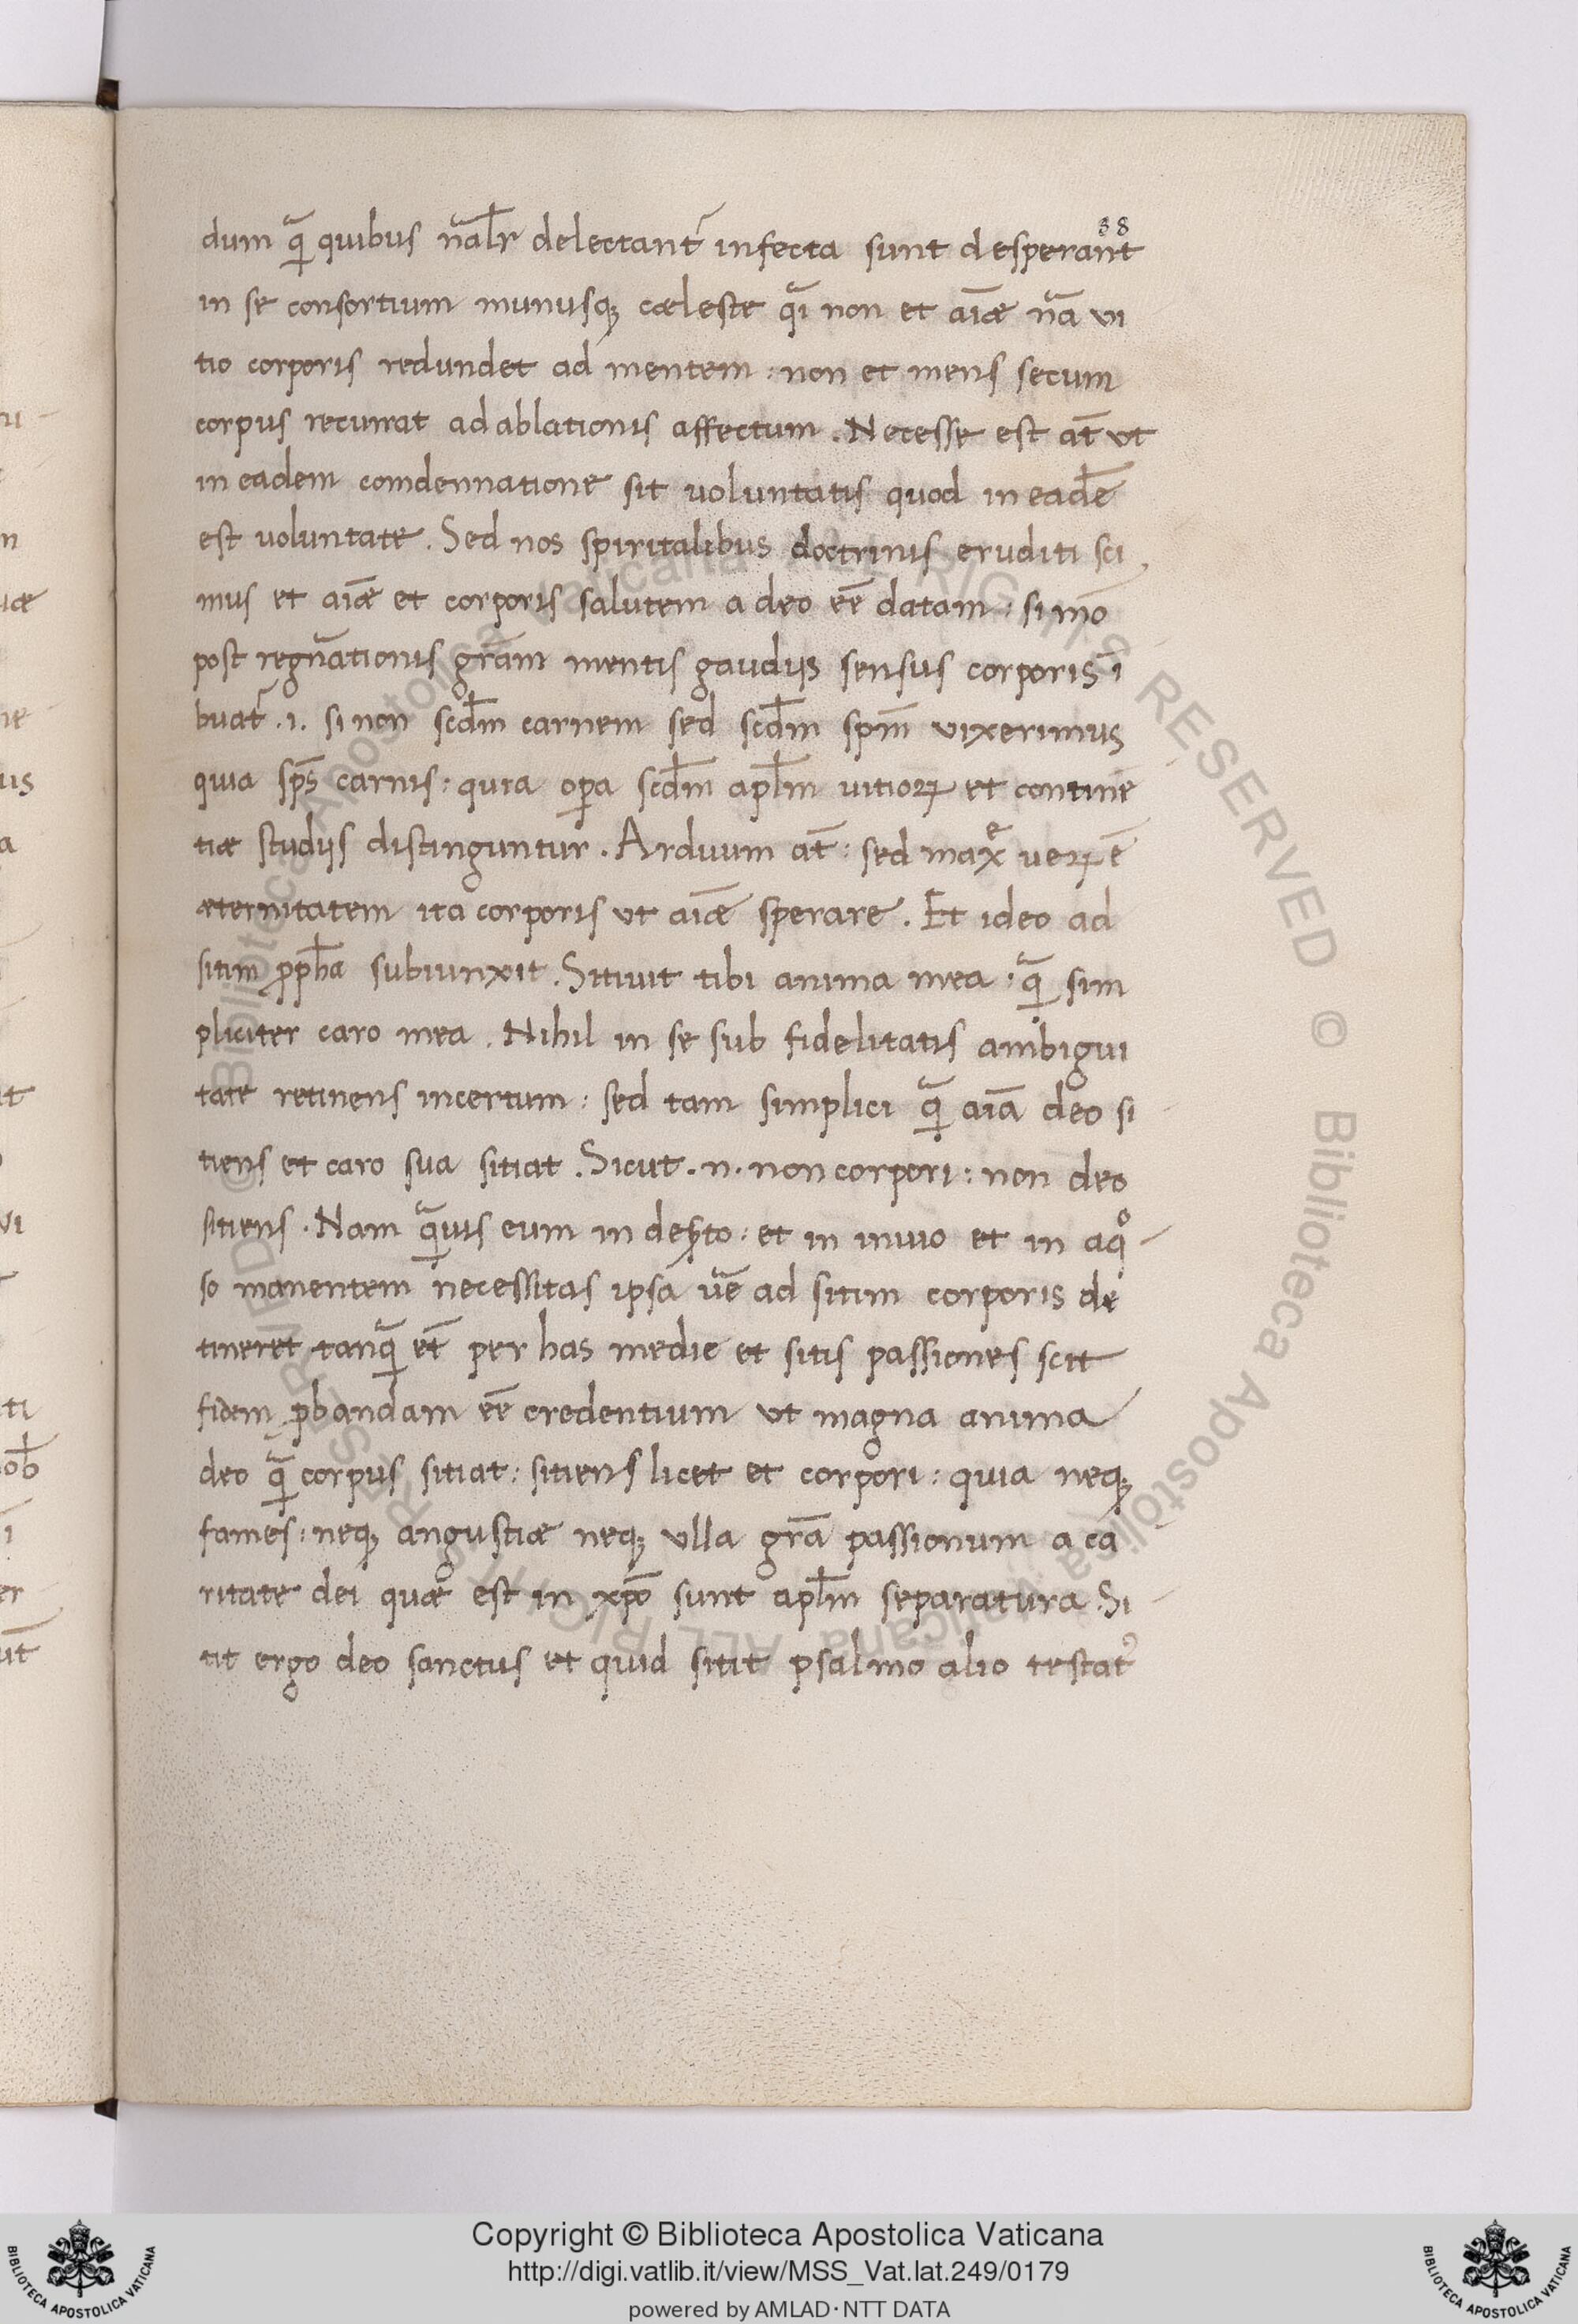 38
dum q̃ quibus nãlr delectant᷑ infecta sunt desperant
in se consortium munusq; cæleste q̃i non et aĩæ nã vi
tio corporis redundet ad mentem : non et mens secum
corpus recurrat ad ablationis affectum . Necesse est at̃ ut
in eadem comdennatione sit uoluntatis quod in eadẽ
est voluntate . Sed nos spiritalibus doctrinis eruditi sci
mus et aĩæ et corporis salutem a deo eẽ datam : si mõ
post regñationis grãm mentis gaudijs sensus corporis ĩ
buat᷑ .i. si non scd̃m carnem sed scd̃m spm̃ vixerimus
quia sps̃ carnis : quia opa scd̃m apl̃m uitioꝝ et continẽ
tiæ studijs distinguntur . Arduum at̃ : sed maxͤ ueꝝ ẽ
æternitatem ita corporis ut aĩæ sperare . Et ideo ad
sitim ꝓph̃a subiunxit . Sitiuit tibi anima mea : q̃ sim
pliciter caro mea . Nihil in se sub fidelitatis ambigui
tate retinens incertum : sed tam simplici q̃ aĩa deo si
tiens et caro sua sitiat . Sicut . n . non corpori : non deo
sitiens . Nam q̃uis eum in des̃to : et in inuio et in aqͦ
so manentem necessitas ipsa uẽ ad sitim corporis de
tineret tanq̃ et̃ per has medie et sitis passiones scit
fidem ꝓbandam eẽ credentium ut magna anima
deo q̃ corpus sitiat : sitiens licet et corpori : quia neq;
fames : neq; angustiæ neq; ulla grã passionum a ca
ritate dei quæ est in xpõ sunt apl̃m separatura . Si
tit ergo deo sanctus et quid sitit psalmo alio testat᷑
Copyright © Biblioteca Apostolica Vaticana
http://digi.vatlib.it/view/MSS_Vat.lat.249/0179
powered by AMLAD·NTT DATA